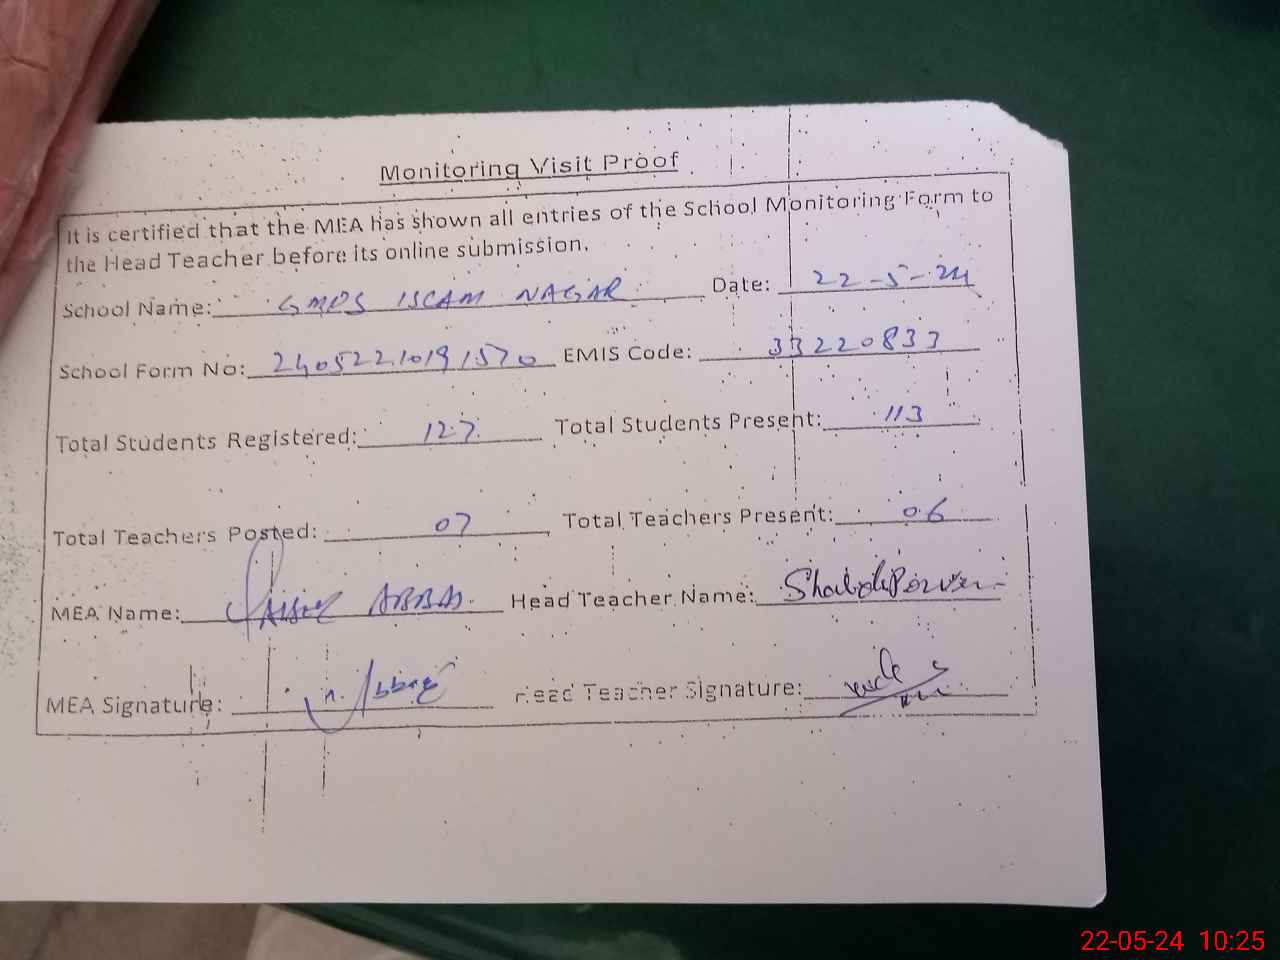 Monitoring Visit Proof
It is certified that the MEA has shown all entries of the School Monitoring Form to
the Head Teacher before its online submission.
School Name: GMPS ISLAM NAGAR Date: 22-5-24
School Form No: 24052210191570 EMIS Code: 33220833
Total Students Registered: 127 Total Students Present: 113
Total Teachers Posted: 07 Total Teachers Present: 06
MEA Name: ABBAS Head Teacher Name:
MEA Signature: Head Teacher Signature:
22-05-24 10:25